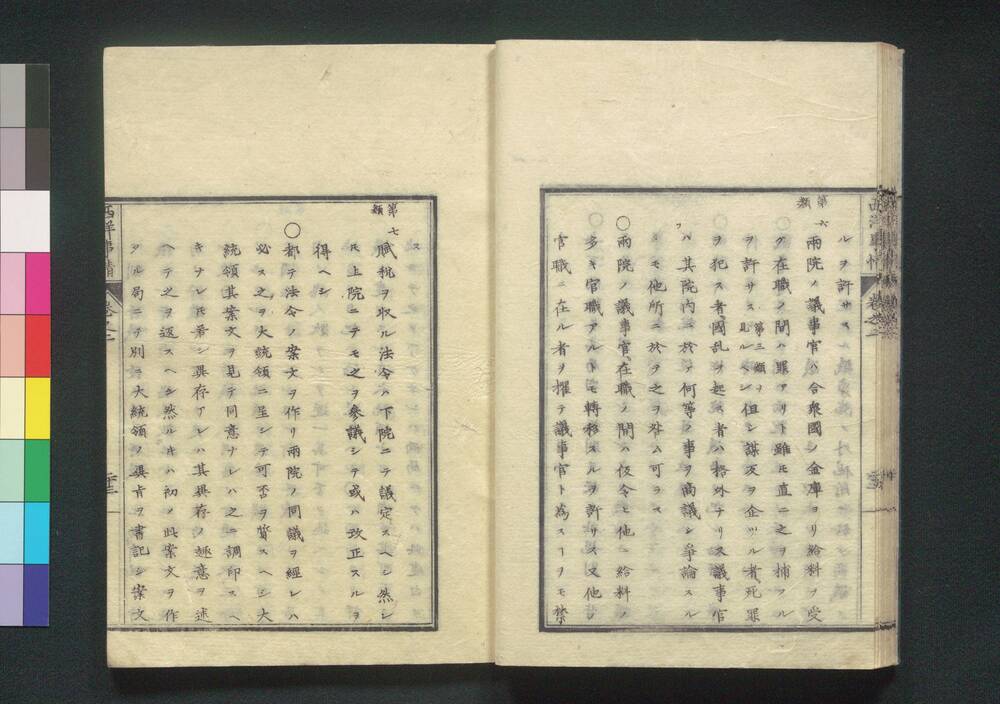 ルヲ許サス
第六類
兩院ノ議事官ハ合衆國ノ金庫ヨリ給料ヲ受
ク在職ノ間ハ罪アリト雖モ直ニ之ヲ捕フル
ヲ許サス第三類ヲ見ルベシ但シ謀反ヲ企ツル者死罪
ヲ犯ス者國乱ヲ起ス者ハ格外ナリ又議事官
ハ其院内ニ於テ何等ノ事ヲ商議シ爭論スル
トモ他所ニ於テ之ヲ可ラス
○兩院ノ議事官在職ノ間ハ仮令ヒ他ニ給料ノ
多キ官職アルトモ轉移スルヲ許サス又他ノ
官職ニ在ル者ヲ擢テ議事官ト為スヿヲモ禁
ス
第七類
賦税ヲ取ル法令ハ下院ニテ議定スヘシ然レ
𪜈上院ニテモ之ヲ參議シテ或ハ改正スルヲ
得ヘシ
○都テ法令ノ案文ヲ作リ兩院ノ同議ヲ經レハ
必ス之ヲ大統領ニ呈シテ可否ヲ質スヘシ大
統領其案文ヲ見テ同意ナレハ之ニ調印スヘ
キナレ𪜈若シ異存アレハ其異存ノ趣意ヲ述
ヘテ之ヲ返スヘシ然ルキハ初メ此案文ヲ作
タル局ニテ別ニ大統領ノ異存ヲ書記シ案文
西洋事情
卷之二
西洋事情 卷之二